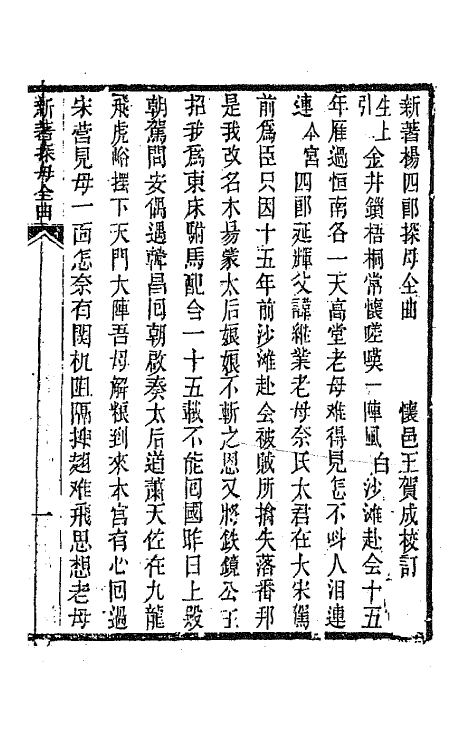 新著楊四郎探母全曲　懷邑王賀成校訂
生上引　金井鎖梧桐常懷嗟嘆一陣風　白　沙滩赴会十五
年雁過恒南各一天高堂老母难得見怎不呌人泪連
連　本宫四郎延輝父諱継業老母奈氏太君在大宋駕
前爲臣只因十五年前沙滩赴会被賊所擒失落番邦
是我改名木易蒙太后娘娘不斬之恩又將鉄鏡公主
招我爲東床駙馬配合一十五載不能囘國昨日上殿
朝駕問安偶遇韓昌囘朝啟奏太后道蕭天佐在九龍
飛虎峪擺下天門大陣吾母解粮到來本宫有心囘過
宋营見母一面怎奈有関机阻隔挿翅难飛思想老母
新著探母全曲　一